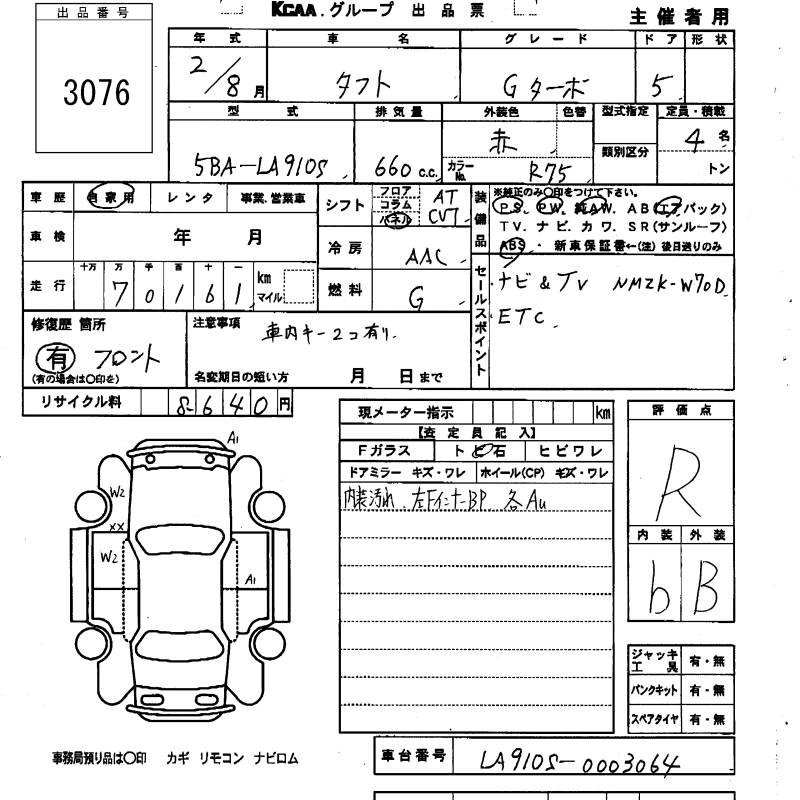 出品番号
3076
KCAA.グループ 出品票
主催者用
年式 車名 グレード ドア 形状
2/8月 タフト Gターボ 5
型式 排気量 外装色 色替 型式指定 定員・積載
5BA-LA910S 660c.c. 赤 類別区分 4名
カラーNo. R75 トン
車歴 自家用 レンタ 事業.営業車
車検 年 月
走行 十万 万 千 百 十 一 km マイル
70161
シフト フロア コラム パネル AT CV7
冷房 AAC
燃料 G
装備品 ※純正のみ○印をつけて下さい。
PS. PW. 純AW. AB(エアバック)
TV. ナビ. カワ. SR(サンルーフ)
ABS・新車保証書←(注)後日送りのみ
セールスポイント
ナビ&TV NMZK-W70D
ETC.
修復歴 箇所
有 フロント
(有の場合は○印を)
注意事項
車内キー2コ有り.
名変期日の短い方 月 日まで
リサイクル料 8640円
現メーター指示 km
【査定員記入】
Fガラス トビ石 ヒビワレ
ドアミラー キズ・ワレ ホイール(CP) キズ・ワレ
内装汚れ. 左Fインナ-BP 各Au
評価点
R
内装 外装
b B
A1
W2
XX
W2
A1
ジャッキ工具 有・無
パンクキット 有・無
スペアタイヤ 有・無
事務局預り品は○印 カギ リモコン ナビロム
車台番号 LA910S-0003064